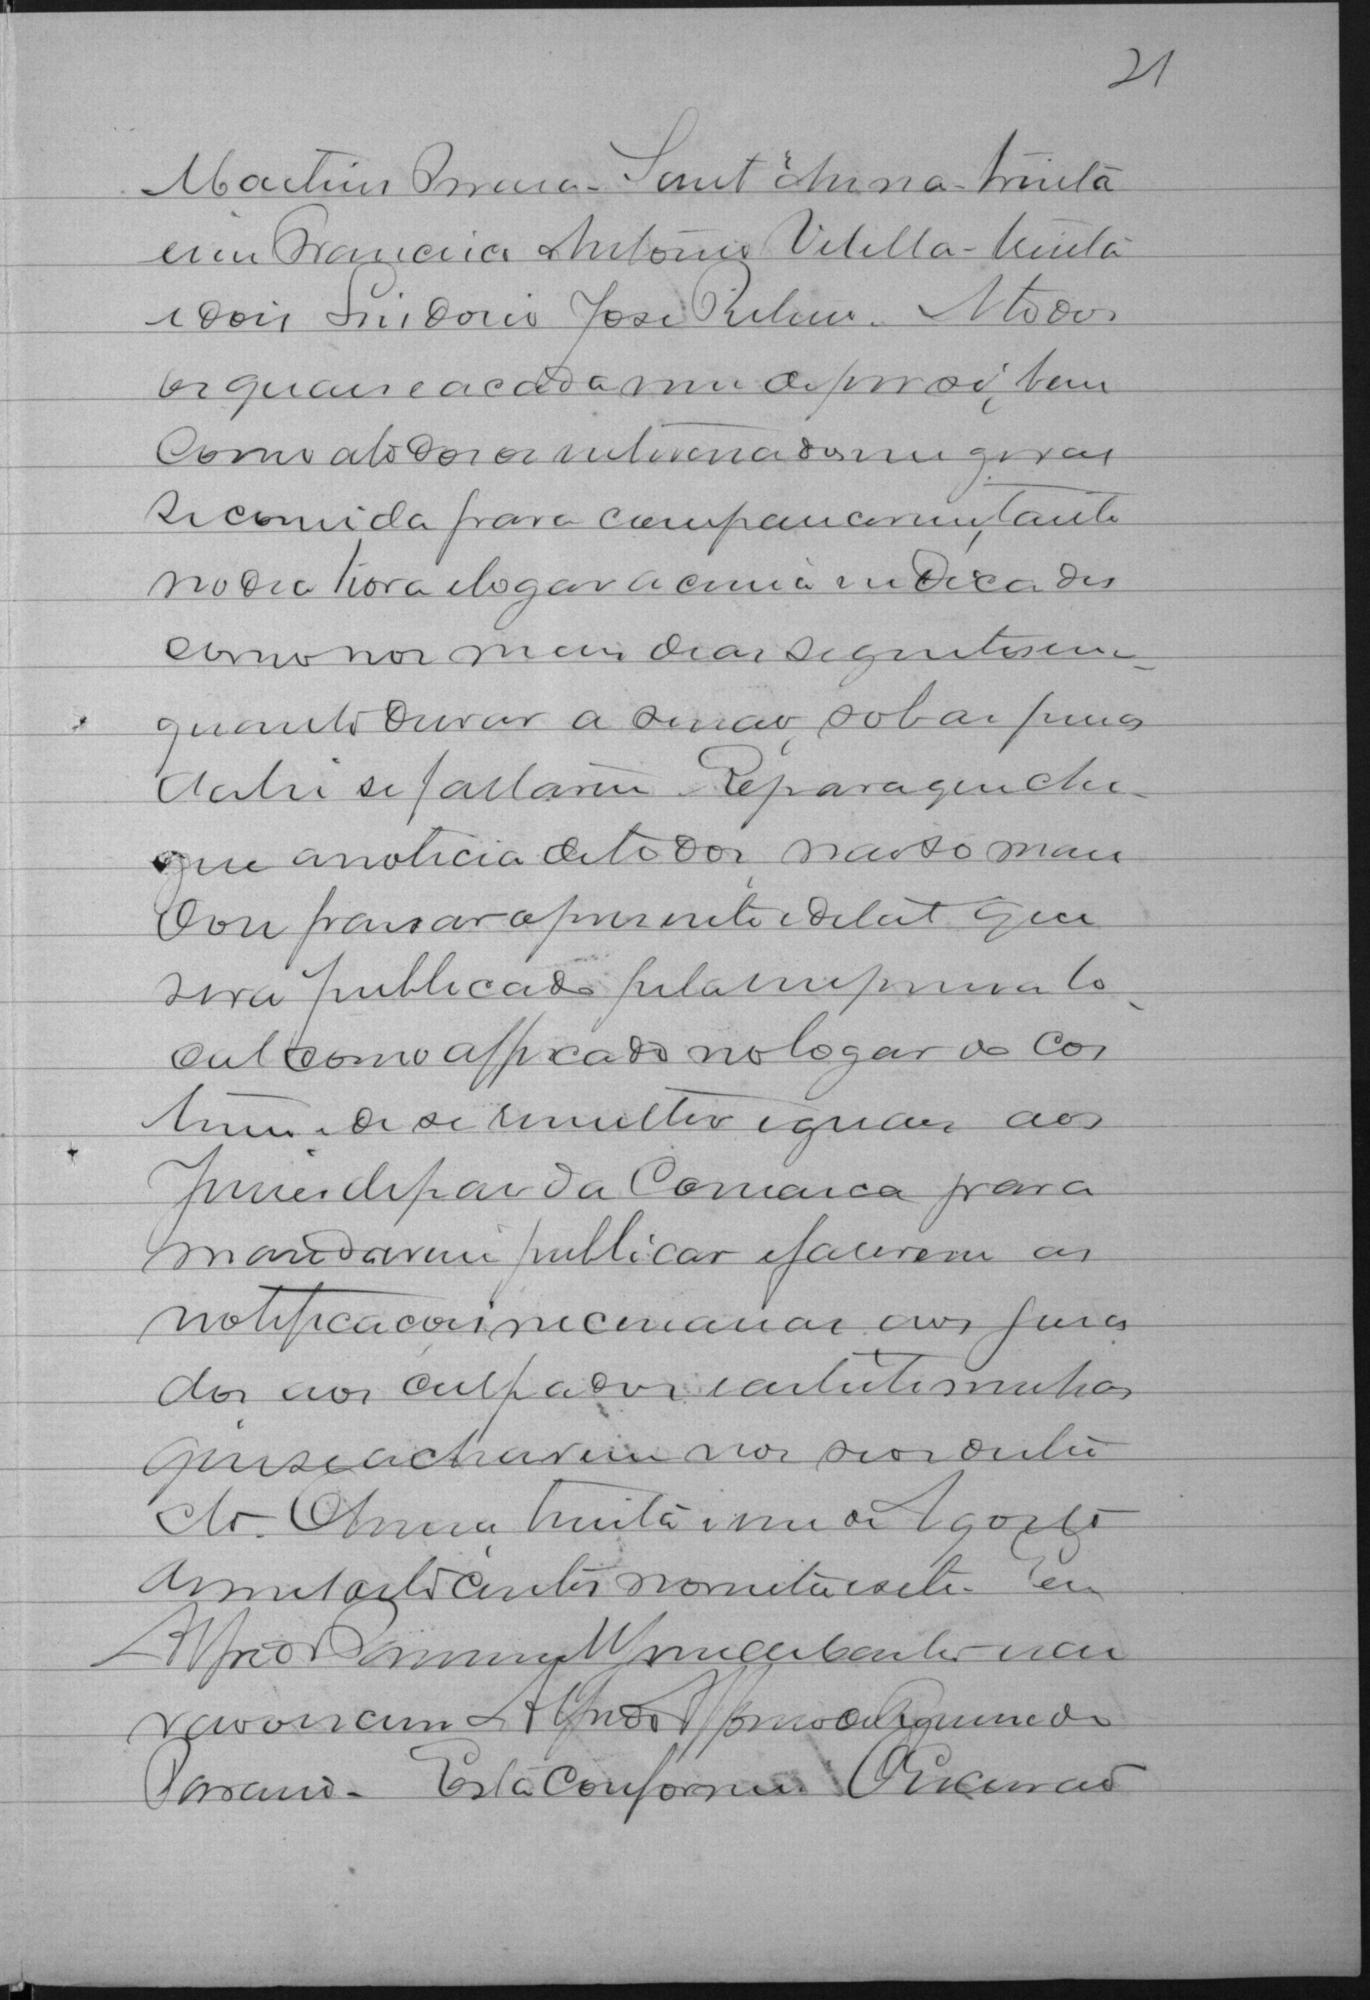 21
Martins Sant'Anna - trinta
e um Francisco Antonio Vilella - trinta
e dois Lindorio José A todos
os quaes e a cada um de per si, bem
como a todos os interessados em geral
se convida para comparecerem, tanto
no dia hora e logar acima indicados
como nos mais dias seguintes em-
quanto durar a sessão, sob as penas
da lei se faltarem. E para que che-
gue a noticia de todos, não só man
dou passar o presente edital que
será publicado pela imprensa lo-
cal como affixado no logar do cos
tume e de se remetter eguaes aos
Juizes de paz da Comarca para
mandarem publicar e fazerem as
notificações necessarias aos jura
dos aos culpados e as testemunhas
que se acharem nos seos distric
tos. trinta e um de Agosto
de mil oitocentos noventa e sete. Eu
Alfredo escrivão
escrevi Alfredo Affonso de
Está conforme. O Escrivão